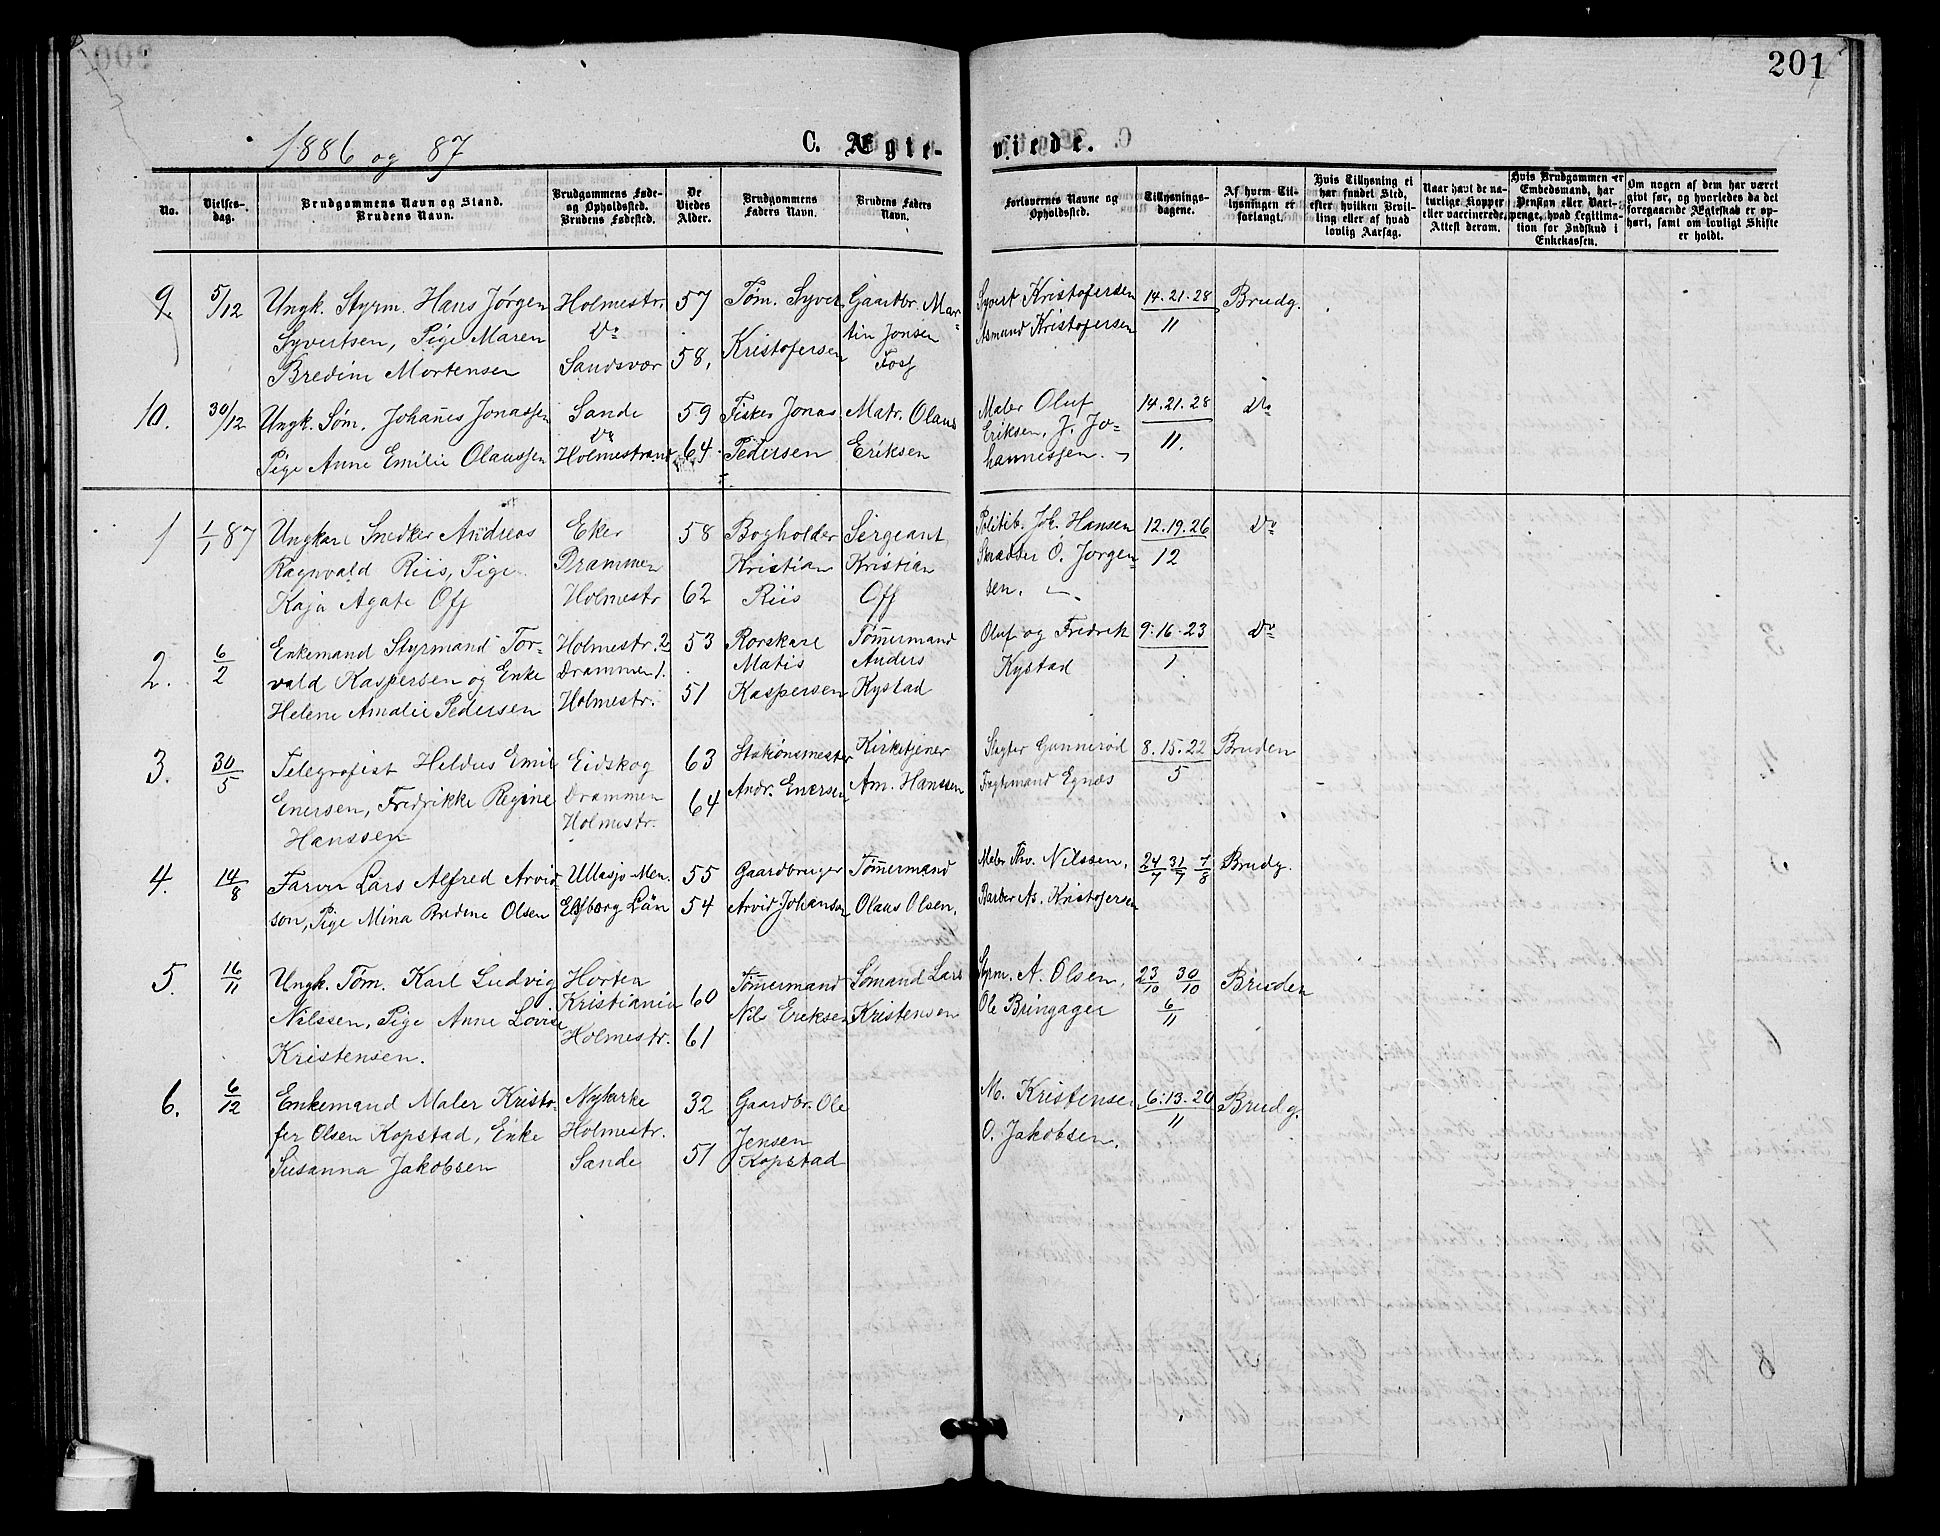 201
1886 og 87
C. Ægte-
viede.
No.
Vielses-
dag.
Brudgommens Navn og Stand.
Brudens Navn.
Brudgommens Føde-
og Opholdssted.
Brudens Fødested.
De
Viedes
Alder.
Brudgommens
Faders Navn.
Brudens Faders
Navn.
Forlovernes Navne og
Opholdssted.
Tillysnings-
dagene.
Af hvem Til-
lysningen er
forlangt.
Hvis Tillysning ei
har fundet Sted,
efter hvilken Bevil-
ling eller af hvad
lovlig Aarsag.
Naar havt de na-
turlige Kopper
eller vaccinerede,
Attest derom.
Hvis Brudgommen er
Embedsmand, har
Pension eller Vart-
penge, hvad Legitima-
tion for Indskud i
Enkekassen.
Om nogen af dem har været
givt før, og hvorledes da det
foregaaende Ægteskab er op-
hørt, samt om lovligt Skifte
er holdt.
9. 5/12
Ungk. Styrm. Hans Jørgen
Syvertsen, Pige Maren
Bredine Mortensen
Holmestr.
Do
Sandsvær
57
58.
Tøm. Syver
Kristofersen
Gaardbr. Mar-
tin Jonsen
Foss
Syvert Kristofersen
Asmund Kristofersen
14. 21. 28
11
Brudg.
10. 30/12
Ungk. Søm. Johañes Jonassen
Pige Anne Emilie Olaussen
Sande
Do
Holmestrand
59
64
Fisker Jonas
Pedersen
Matr. Olaus
Eriksen
Maler Oluf
Eriksen, J. Jo-
hannessen.
14. 21. 28
11.
Do
1 1/1 87
Ungkarl Snedker Andreas
Ragnvald Riis, Pige
Kaja Agate Off
Eker
Drammen
Holmestr
58
62
Bogholder
Kristian
Riis
Sergeant
Kristian
Off
Politib. Joh. Hansen
Skrædder O. Jorgen-
sen.
12. 19. 26
12
Do
2. 6/2
Enkemand Styrmand Tor-
vald Kaspersen og Enke
Helene Amalie Pedersen
Holmestr. 2
Drammen 1.
Holmestr.
53
51
Rorskarl
Matis
Kaspersen
Tømermand
Anders
Kystad
Oluf og Fredrik
Kystad
9. 16. 23
1
Do
3. 30/5
Telegrafist Heldus Emil
Enersen, Fredrikke Regine
Hanssen
Eidskog
Drammen
Holmestr.
63
64
Stationsmester
Andr. Enersen
Kirketjener
Am. Hanssen
Slagter Gunnerød
Fagtmand Egnæs
8. 15. 22
5
Bruden
4. 14/8
Farver Lars Alfred Arvid-
son, Pige Mina Bredine Olsen
Ullasjo Men.
Elfborg Län
55
54
Gaardbruger
Arvid Johanson
Tømermand
Olaus Olsen.
Maler Thv. Nilssen,
Barber As. Kristofersen
24/7 31/7 7/8
Brudg.
5. 16/11
Ungk. Tøm. Karl Ludvig
Nilssen, Pige Anne Lovise
Kristensen.
Horten
Kristiania
Holmestr.
60
61
Tømermand
Nils Eriksen
Sømand Lars
Kristensen
Styrm. A. Olsen,
Ole Bringager
23/10 30/10
6/11
Bruden
6. 6/12
Enkemand Maler Kristo-
fer Olsen Kopstad, Enke
Susanna Jakobsen
Nykirke
Holmestr.
Sande
32
51
Gaardbr. Ole
Jensen
Kopstad
M. Kristensen
O. Jakobsen.
6. 13. 20
11
Brudg.